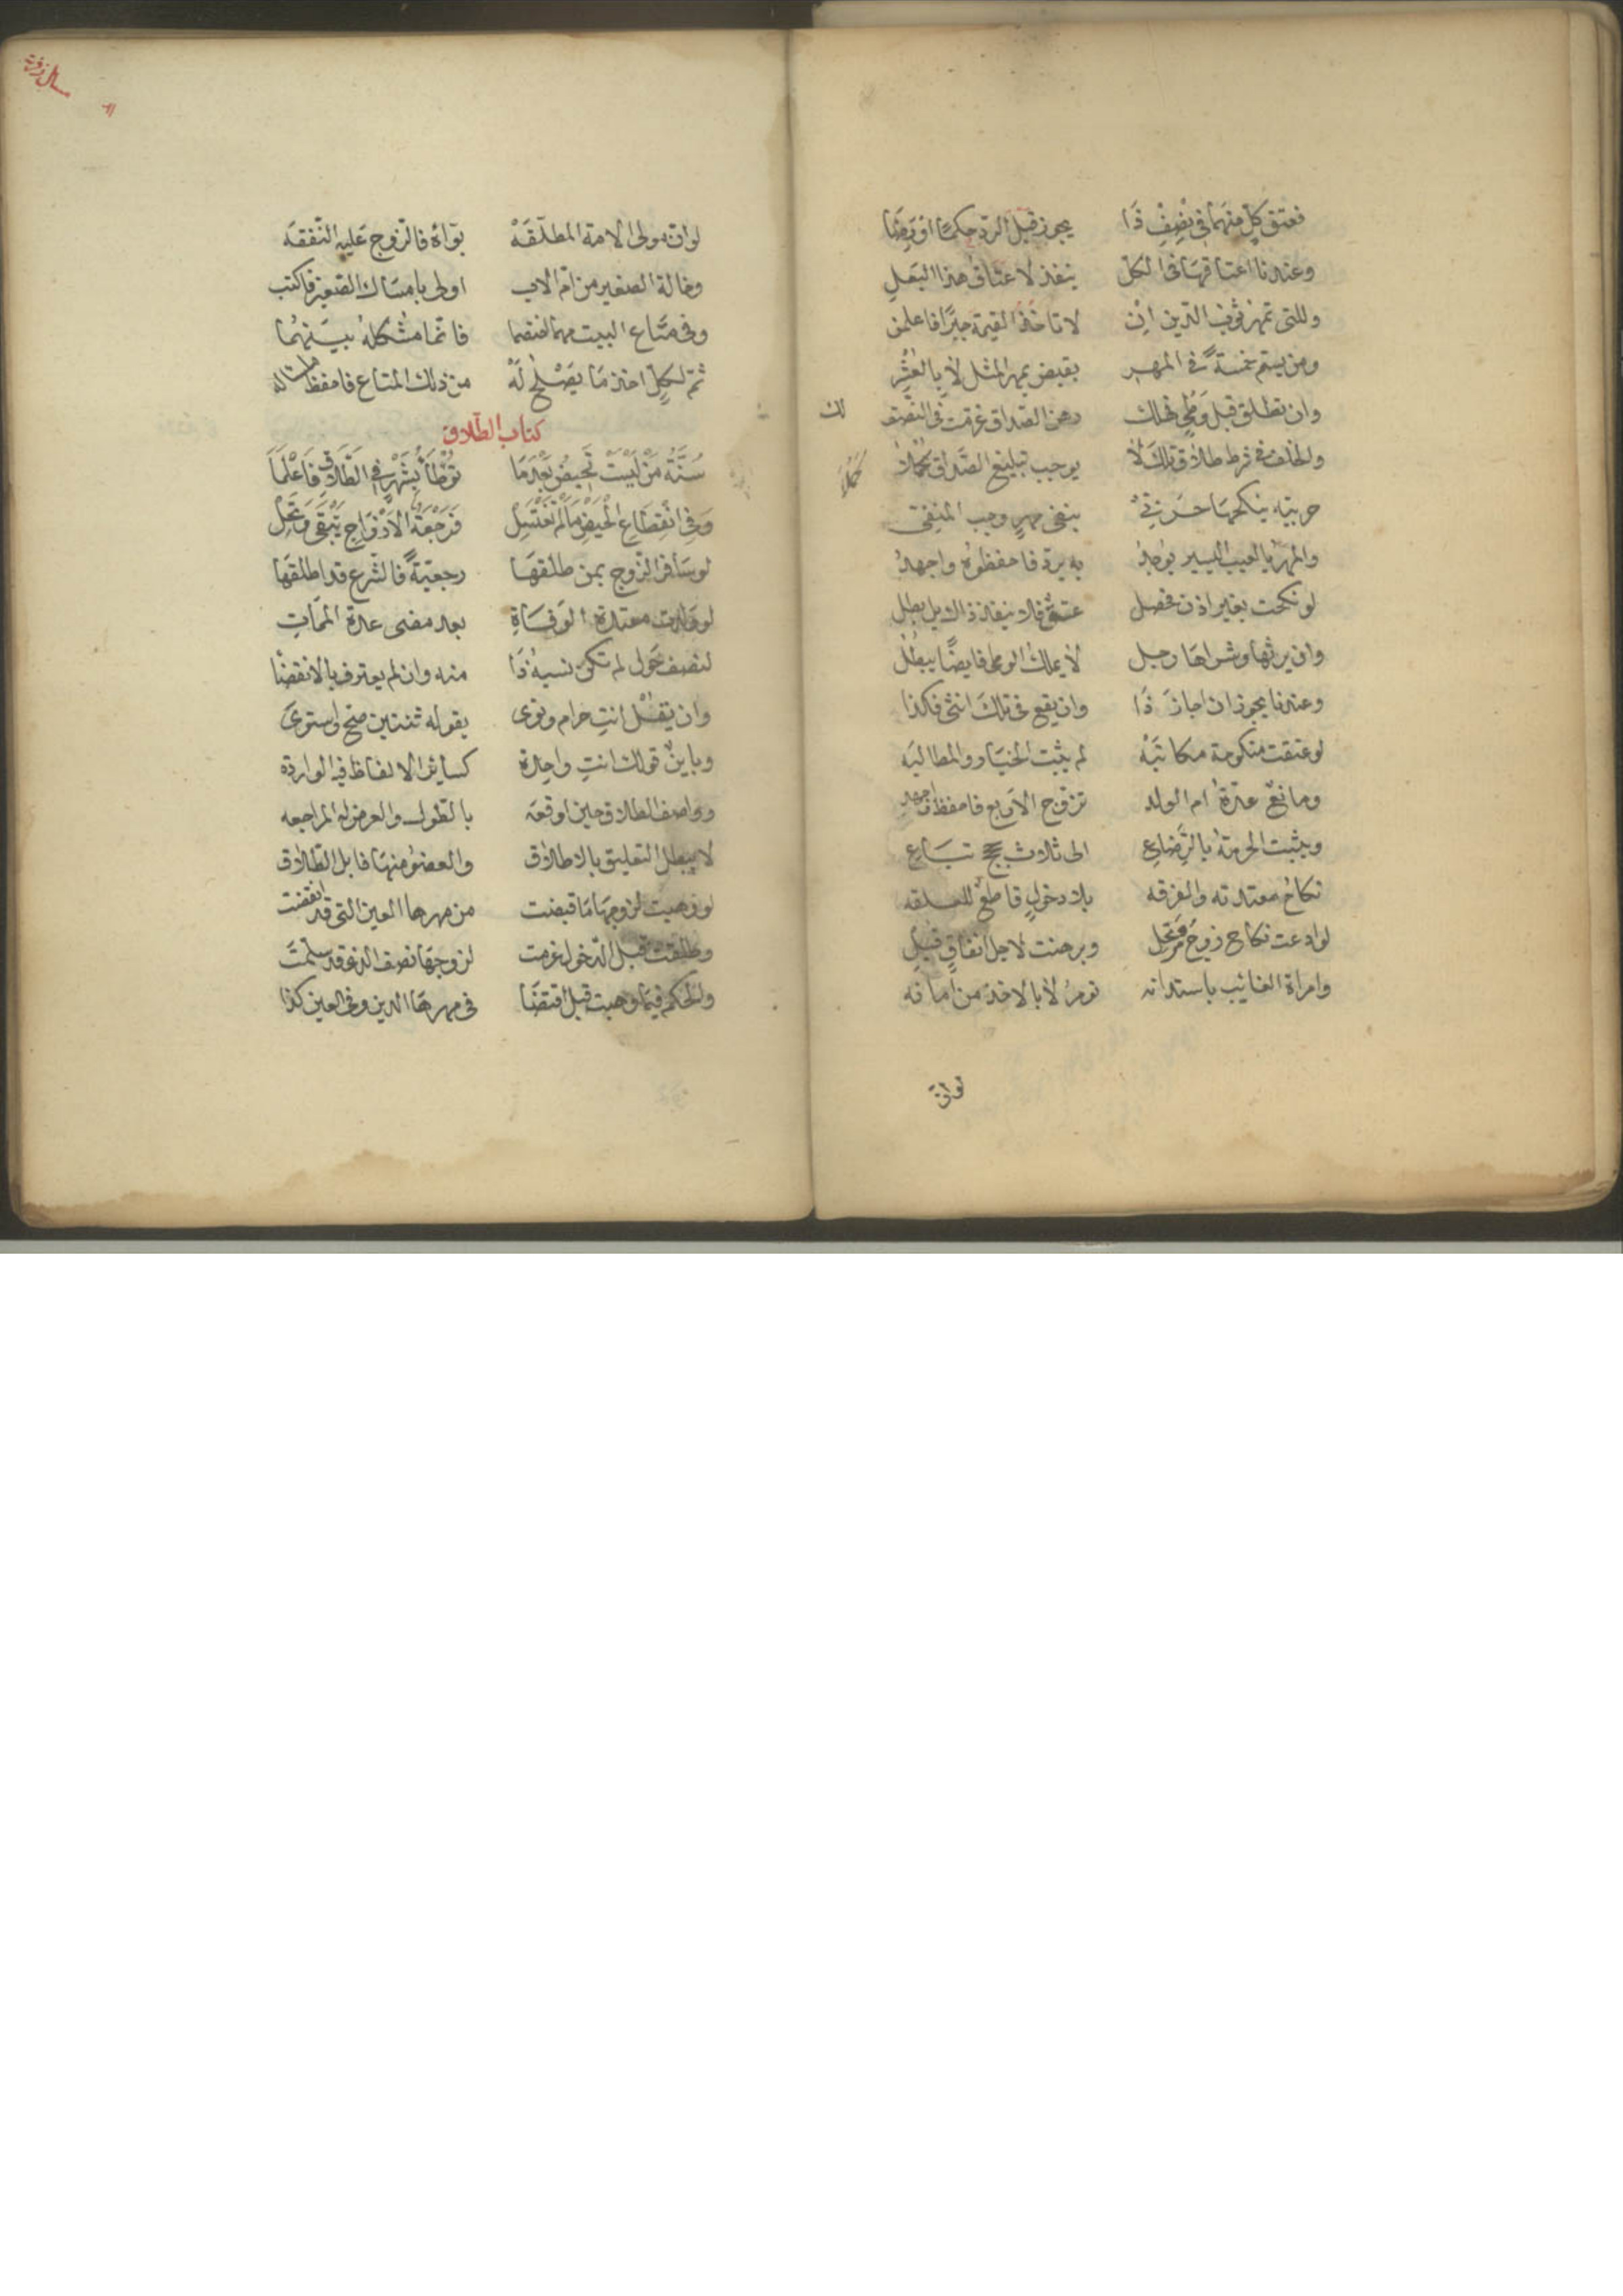 فعتق كل منهما في نصف ذا يجوز قبل الرد حكما او رضا
وعندنا اعتاقها في الكل ينفذ لا عتاق هذا البعل
وللتي تمهر ثوب الدين ان لا تاخذ القيمة جبرا فاعلمن
ومن يتم خمسة في المهر بقبض بمهر المثل لا بالعشر
وان تطلق قبل وطي فهلك رهن الصداق غرمت في النصف لك
والخلف في فرط طلاق تلك لا يوجب تبليغ الصداق كملا
حربية ينكحها حربي بنفي مهر وجب المنفي
والمهر بالعيب اليسير يوجد به يرد فاحفظوه واجهدوا
لو نكحت بغير اذن فحصل عتق فلا ينفذ ذاك بل بطل
وان يرثها وشراها رجل لا يملك الوطي فايضا يبطل
وعندنا يجوز ان اجاز ذا وان يقع في تلك انثى فكذا
لو عتقت منكوحة مكاتبه لم يثبت الخيار والمطالبه
ومانع عدة ام الولد تزوج الاربع فاحفظ واجهد
ويثبت الحرمة بالرضاع الى ثلاث تباع
نكاح معتدته والفرقه بلا دخول قاطع للعلقه
لو ادعت نكاح زوج مرتحل وبرهنت لاجل انفاق قبل
وامراة الغائب باستدانه تومر لا بالاخذ من امانه
لو ان
لو ان مولى الامة المطلقه بواه فالزوج عليه النفقه
وخالة الصغير من ام الاب اولى بامساك الصغير فاكتب
وفي متاع البيت مهما اختصما فانما مشكله بينهما
ثم لكل اخذ ما يصلح له من ذلك المتاع فاحفظ
كتاب الطلاق
سنة من ليست تحيض بعدما توطأ بشهر في الطلاق فاعلما
وفي انقطاع الحيض ما لم تغتسل فرجعة الازواج تبقى وتحل
لو سافر الزوج بمن طلقها رجعية فالشرع قد اطلقها
لو ولدت معتدة الوفاة بعد مضى عدة الممات
لنصف حول لم تكن نسبة ذا منه وان لم يعترف بالانقضا
وان يقل انت حرام ونوى بقوله ثنتين صح واستوى
وباين قولك انت واحدة كسائر الالفاظ فيه الوارده
وواصف الطلاق حين اوقعه بالطول والعرض له المراجعه
لا يبطل التعليق بالاطلاق والعضو منها قابل الطلاق
لو وهبت لزوجها ما قبضت من مهرها العين التي قد انقضت
وطلقت قبل الدخول غرمت لزوجها نصف الذي قد سلمت
والحكم فيما وهبت قبل اقتضا في مهرها الدين وفي العين كذا